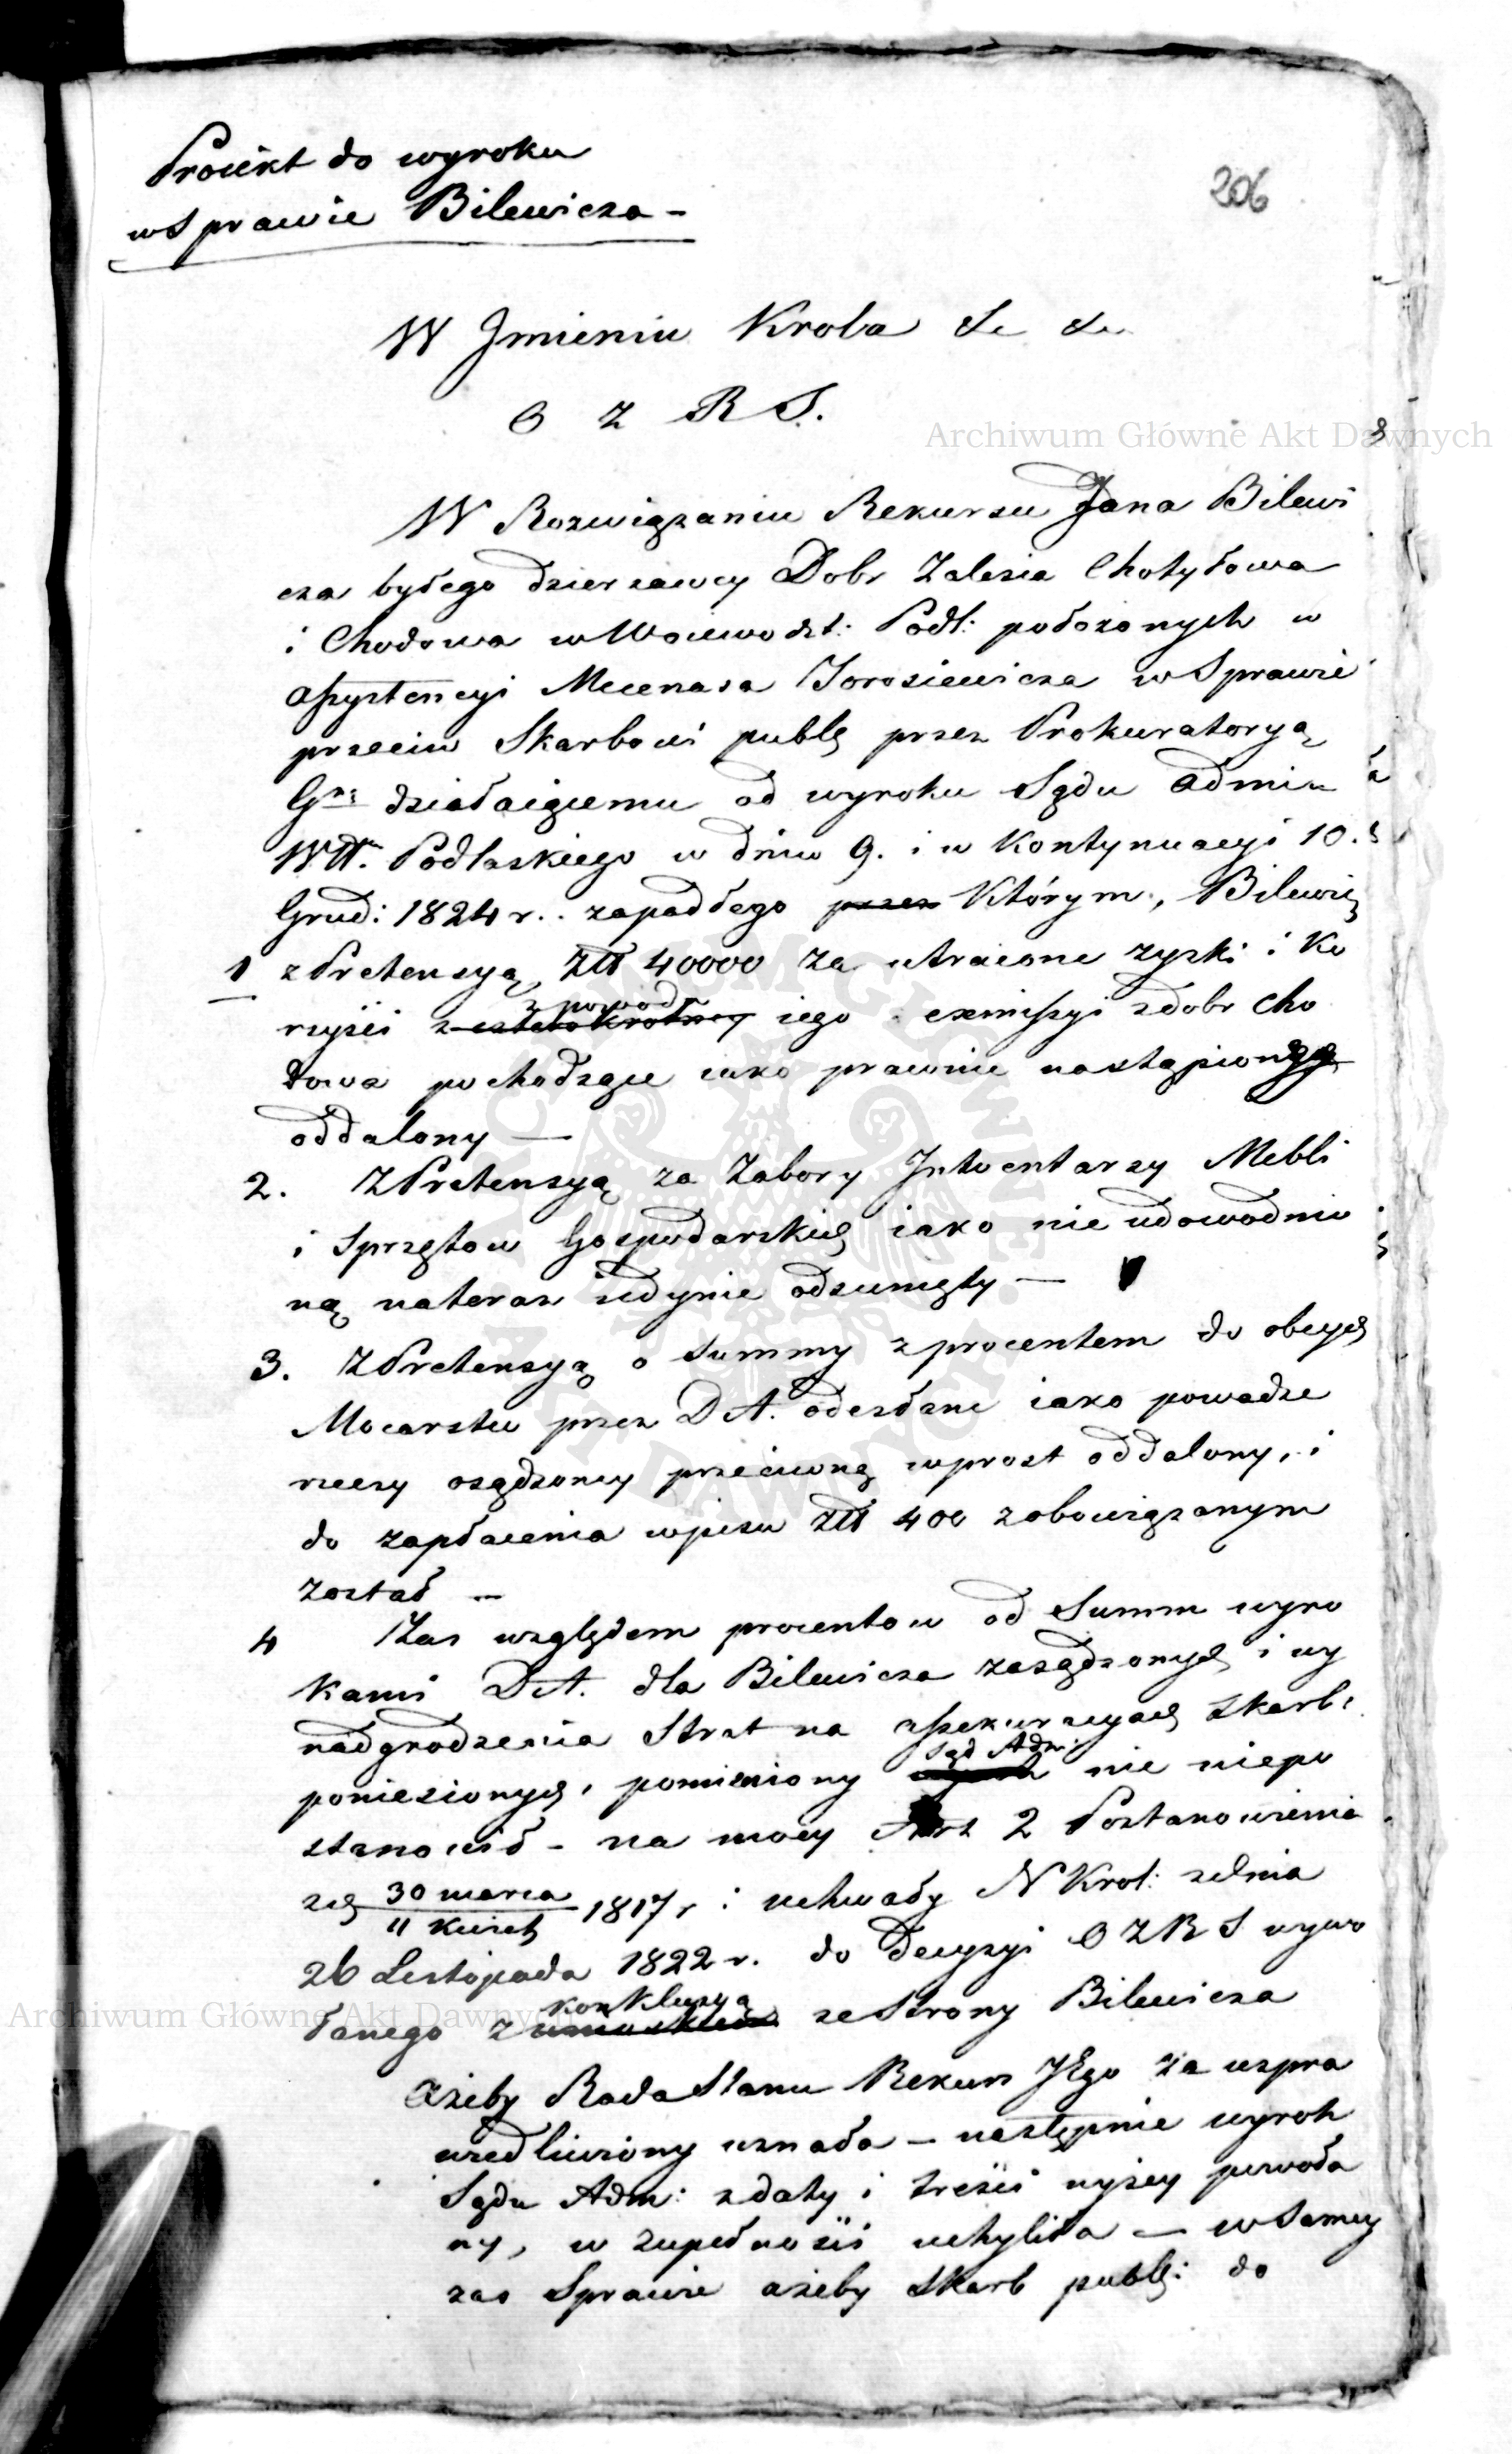 Proiekt do wyroku
w Sprawie Bilewicza -
206
W Jmieniu Krola &c &c
O Z R S.
W Rozwiązaniu Rekursu Jana Bilewi
cza byłego dzierzawcy Dobr Zalesia Chotyłowa
i Chodowa w Woiewodzt: Podl: położonych w
assystencyi Mecenasa Jorosiewicza w Sprawie
przeciw Skarbowi publ przez Prokuratoryą
Gną działaiącemu od wyroku Sądu Admin
Wdztwa Podlaskiego w dniu 9. i w kontynuacyi 10.
Grud: 1824 r. zapadłego przez Którym, Bilewicz
1 z Pretensyą, Złł 40000 za utracone zyski i Ko
rzyści z powodu iego exmissyi z dobr Cho
dowa pochodzące iako prawnie nastąpioney
oddalony —
2. Z Pretensyą za Zabory Jnwentarzy Mebli
i Sprzętow Gospodarskich iako nie udowodnio
ną nateraz iedynie odsunięty —
3. Z Pretensyą o Summy z procentem do obcych
Mocarstw przez D A. odesłane iako powadze
rzeczy osądzoney przeciwną wprost oddalony, i
do zapłacenia wpisu Złł 400 zobowiązanym
został —
4 Zas względem procentow od Summ wyro
kami D A. dla Bilewicza zasądzonych i wy
nadgrodzenia Strat na assekuracyach Skarb:
poniesionych, pomieniony Sąd Adm: nic niepo
stanowił - na mocy Art 2 Postanowienia
z d 30 marca / 11 Kwiet 1817 r i uchwały N Krol: z dnia
26 Listopada 1822 r. do Decyzyi O Z R S wywo
łanego z konkluzyą ze Strony Bilewicza
Azeby Rada Stanu Rekurs Jego za uspra
wiedliwiony uznała — następnie wyrok
Sądu Adm: z daty i treści wyżey powoła
ny, w zupełności uchyliła — w Samey
zas Sprawie ażeby Skarb publ: do
Archiwum Główne Akt Dawnych
Archiwum Główne Akt Dawnych